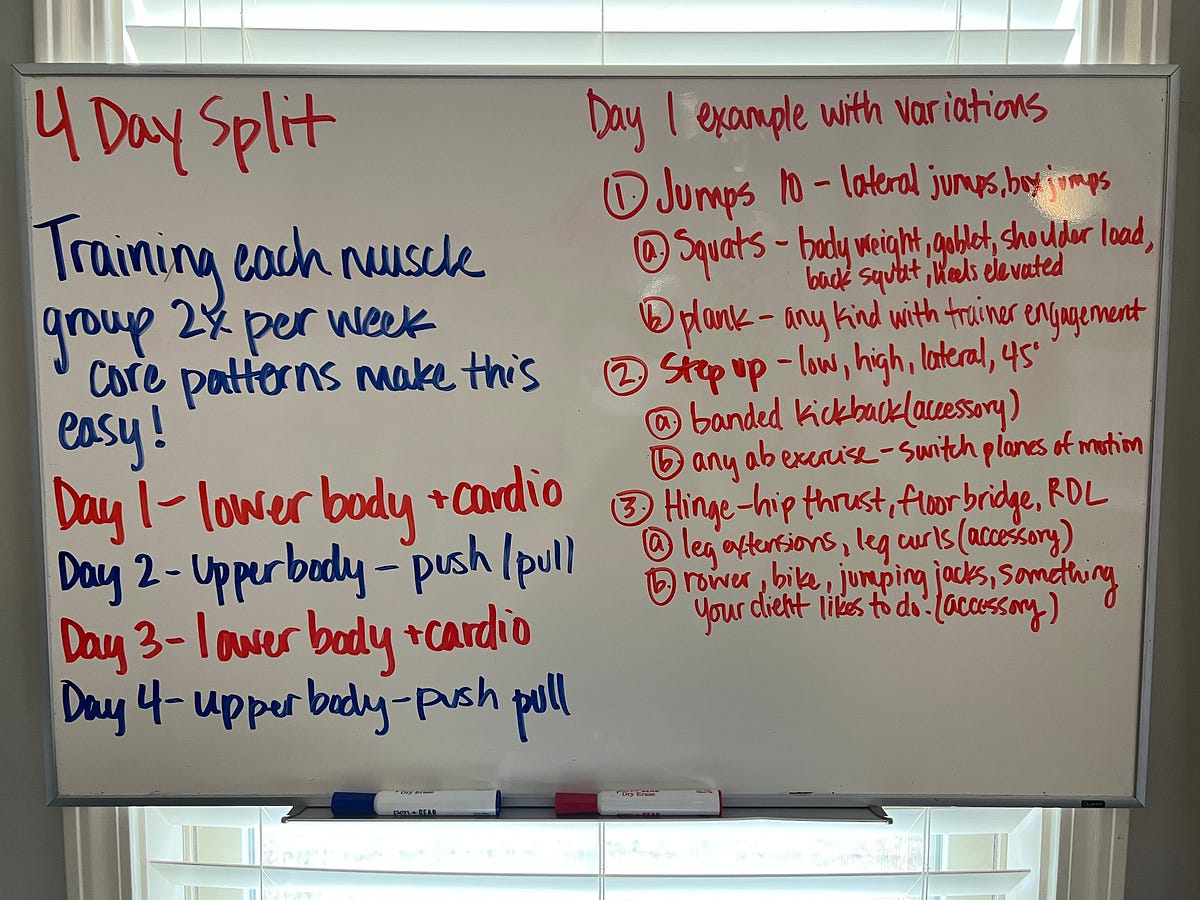 4 Day Split
Training each muscle
group 2x per week
core patterns make this
easy!
Day 1- lower body + cardio
Day 2- Upper body - push/pull
Day 3- lower body + cardio
Day 4- upper body - push pull
Day 1 example with variations
1. Jumps 10 - lateral jumps, box jumps
a. Squats - body weight, goblet, shoulder load,
back squat, heels elevated
b. plank - any kind with trainer engagement
2. Step up - low, high, lateral, 45°
a. banded kickback (accessory)
b. any ab exercise - switch planes of motion
3. Hinge - hip thrust, floor bridge, RDL
a. leg extensions, leg curls (accessory)
b. rower, bike, jumping jacks, something
your client likes to do. (accessory)
Dry Erase
pen + GEAR
Dry Erase
pen + GEAR
Quartet